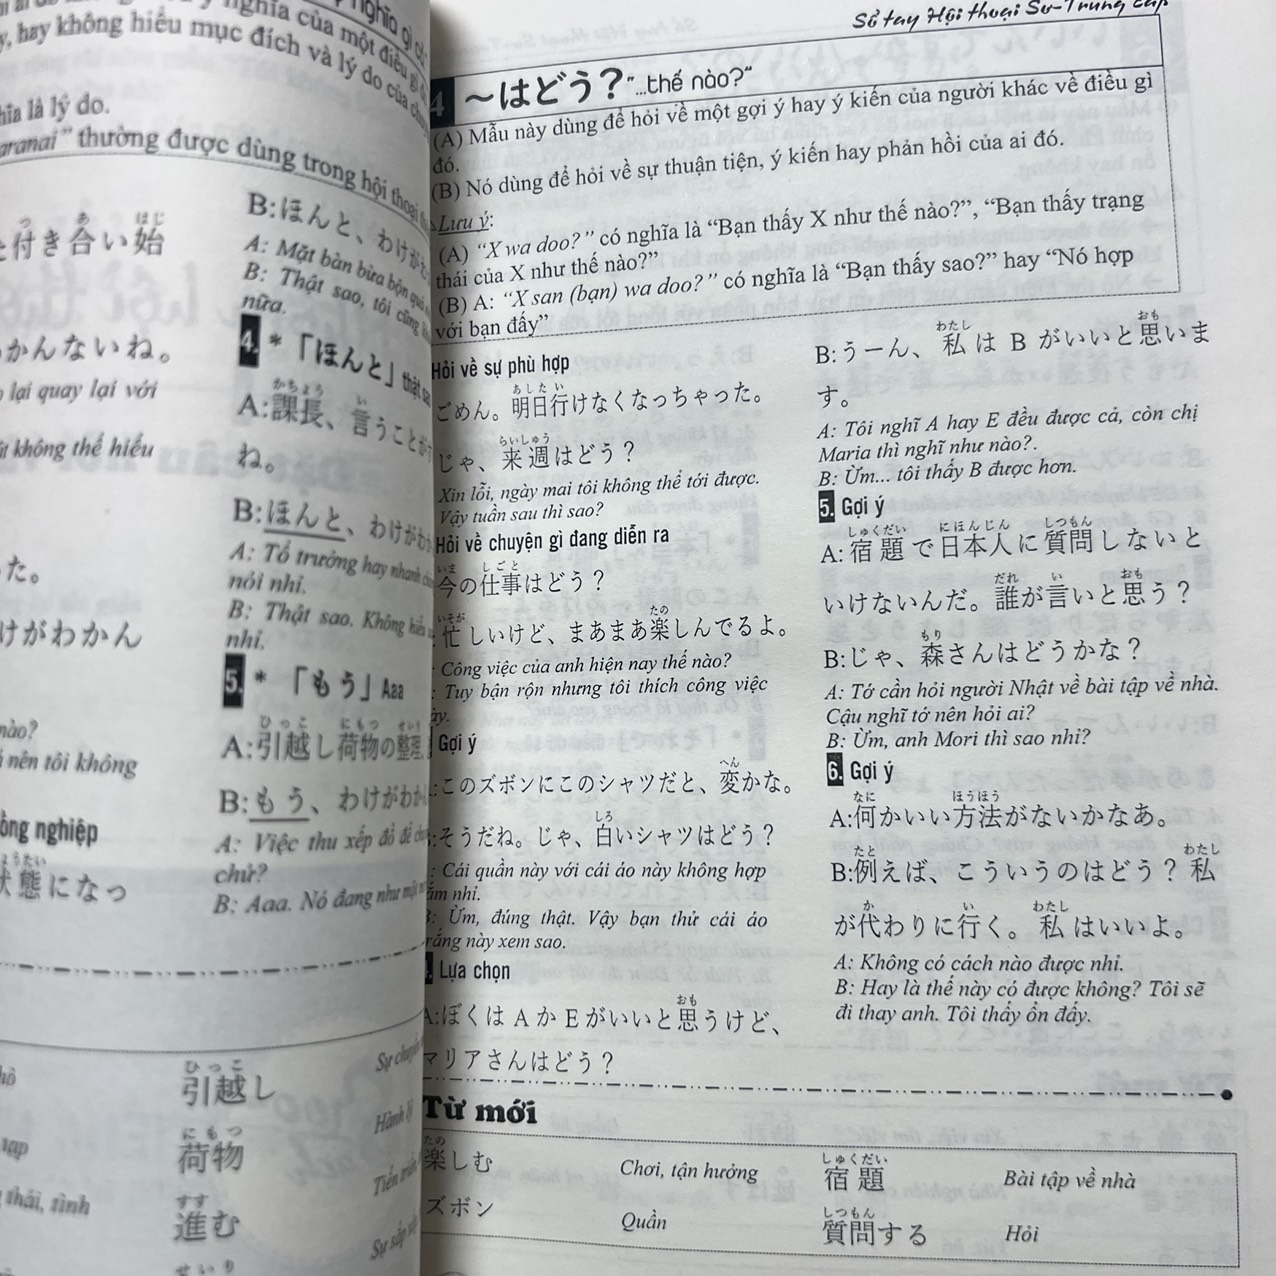 nghĩa của một điều gì
hay không hiểu mục đích và lý do của
là lý do.
thường được dùng trong hội thoại
付き合い始
かんないね。
lại quay lại với
không thể hiểu
た。
けがわかん
nào?
nên tôi không
nghiệp
態になっ
B:ほんと、わけが
A: Mặt bàn bừa bộn quá
B: Thật sao, tôi cũng
nữa.
4. *「ほんと」thật
A:課長、言うことが
ね。
B:ほんと、わけがわか
A: Tổ trưởng hay nhanh
nói nhỉ.
B: Thật sao. Không hiểu
nhỉ.
5. *「もう」Aaa
A:引越し荷物の整理
B:もう、わけがわか
A: Việc thu xếp đồ đề
chứ?
B: Aaa. Nó đang như một
引越し
Hành lý
荷物
thái, tình
進む
Sổ tay Hội thoại Sơ-Trung cấp
4 ～はどう？"...thế nào?"
(A) Mẫu này dùng để hỏi về một gợi ý hay ý kiến của người khác về điều gì
đó.
(B) Nó dùng để hỏi về sự thuận tiện, ý kiến hay phản hồi của ai đó.
Lưu ý:
(A) “X wa doo?” có nghĩa là “Bạn thấy X như thế nào?”, “Bạn thấy trạng
thái của X như thế nào?”
(B) A: “X san (bạn) wa doo?” có nghĩa là “Bạn thấy sao?” hay “Nó hợp
với bạn đấy”
Hỏi về sự phù hợp
ごめん。明日行けなくなっちゃった。
じゃ、来週はどう？
Xin lỗi, ngày mai tôi không thể tới được.
Vậy tuần sau thì sao?
Hỏi về chuyện gì đang diễn ra
今の仕事はどう？
忙しいけど、まあまあ楽しんでるよ。
Công việc của anh hiện nay thế nào?
: Tuy bận rộn nhưng tôi thích công việc
Gợi ý
:このズボンにこのシャツだと、変かな。
:そうだね。じゃ、白いシャツはどう？
: Cái quần này với cái áo này không hợp
nhỉ.
B: Ừm, đúng thật. Vậy bạn thử cái áo
trắng này xem sao.
Lựa chọn
A:ぼくは A か E がいいと思うけど、
マリアさんはどう？
B:うーん、私は B がいいと思いま
す。
A: Tôi nghĩ A hay E đều được cả, còn chị
Maria thì nghĩ như nào?.
B: Ừm... tôi thấy B được hơn.
5. Gợi ý
A:宿題で日本人に質問しないと
いけないんだ。誰が言いと思う？
B:じゃ、森さんはどうかな？
A: Tớ cần hỏi người Nhật về bài tập về nhà.
Cậu nghĩ tớ nên hỏi ai?
B: Ừm, anh Mori thì sao nhỉ?
6. Gợi ý
A:何かいい方法がないかなあ。
B:例えば、こういうのはどう？私
が代わりに行く。私はいいよ。
A: Không có cách nào được nhỉ.
B: Hay là thế này có được không? Tôi sẽ
đi thay anh. Tôi thấy ổn đấy.
Từ mới
楽しむ Chơi, tận hưởng 宿題 Bài tập về nhà
ズボン Quần 質問する Hỏi